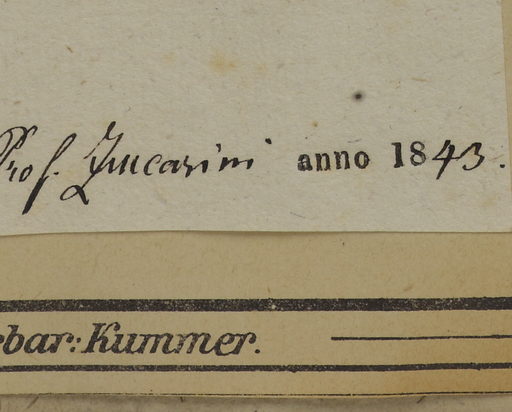 Prof. Zuccarini anno 1843.
ebar: Kummer.